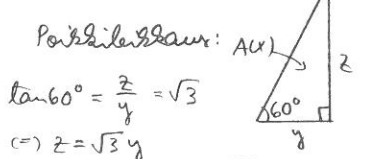 Poikkileikkaus: A(x)
z
tan60° = z/y = √3
60°
(=) z = √3 y
y